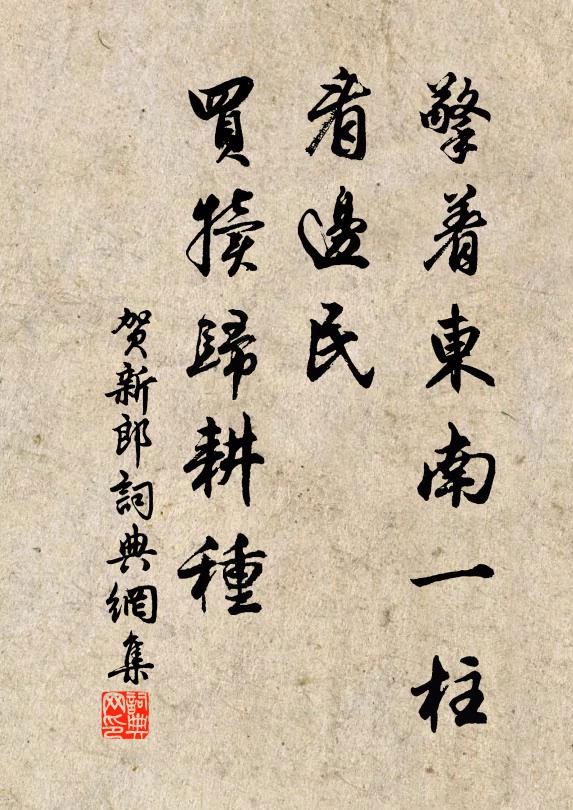 擎着東南一柱
看邊民
買犢歸耕種
贺新郎詞典網集
詞典网印